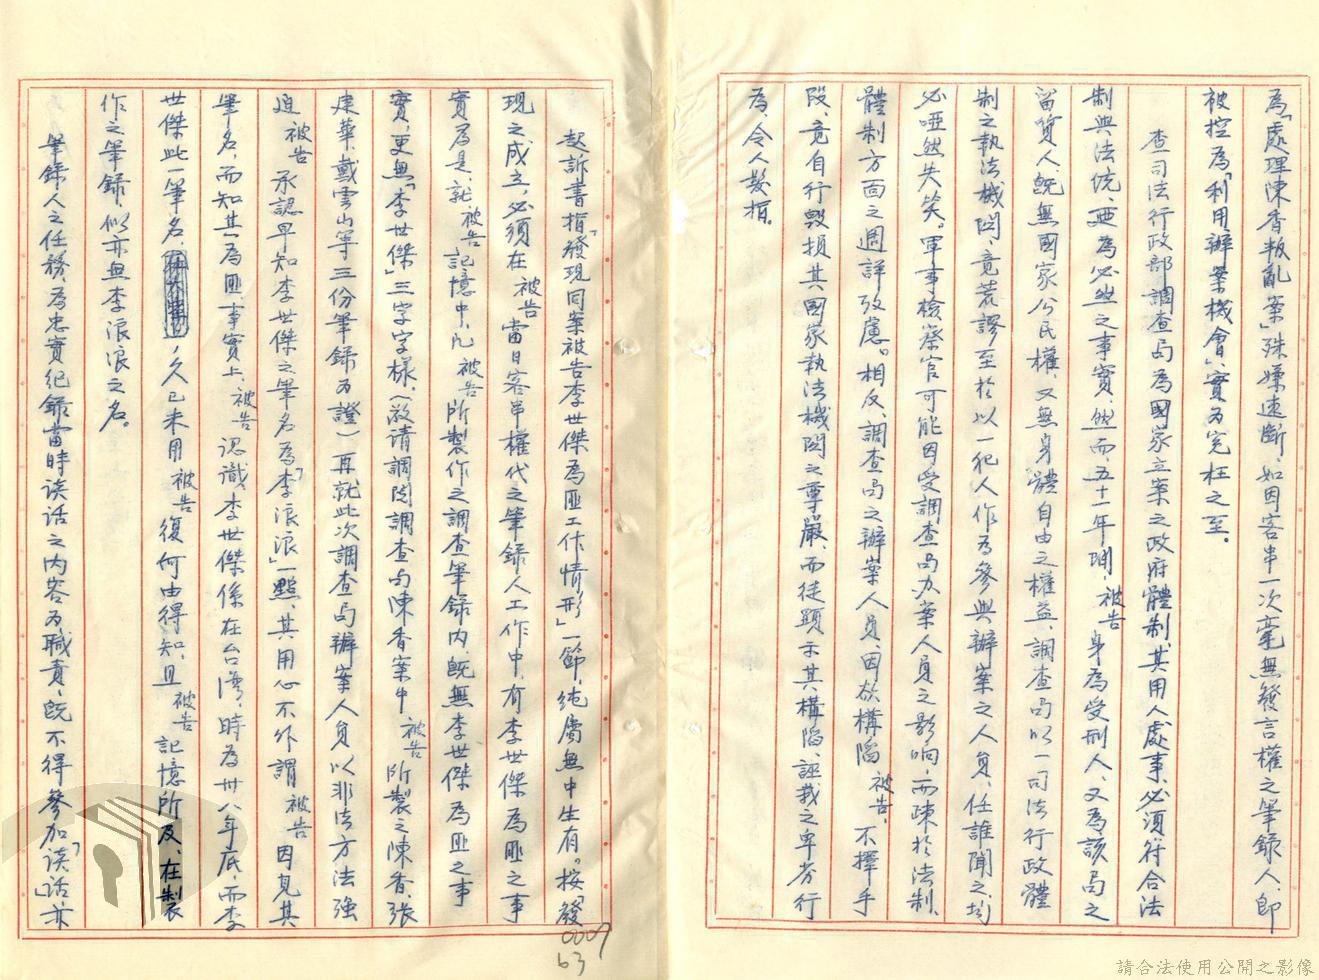 為「處理陳香叛亂案」殊嫌速斷、如因客串一次毫無發言權之筆錄人、即
被控為「利用辦案機會」、實為冤枉之至。
查司法行政部調查局為國家立案之政府體制、其用人處事、必須符合法
制與法統、要為必然之事實、然而五十一年間、被告身為受刑人、又為該局之
留質人、既無國家公民權、又無身體自由之權益、調查局以一司法行政體
制之執法機関、竟荒謬至於以一犯人作為參與辦案之人員、任誰聞之、均
必啞然失笑。軍事檢察官可能因受調查局办案人員之影响、而疎於法制、
體制方面之週詳攷慮。相反、調查局之辦案人員、因欲構陷被告、不擇手
段、竟自行毀損其國家執法機関之尊嚴、而徒顯示其構陷、誣栽之卑劣行
為、令人髮指。
起訴書指「發現同案被告李世傑為匪工作情形」一節、純屬無中生有。按「發
現」之成立、必須在被告當日客串權代之筆錄人工作中、有李世傑為匪之事
實為是、就被告記憶中、凡被告所製作之調查筆錄內、既無李世傑為匪之事
實、更無「李世傑」三字字樣、(敬請調閱調查局陳香案中被告所製之陳香、張
建華、戴雲山等三份筆錄為證)再就此次調查局辦案人員以非法方法強
迫被告承認早知李世傑之筆名為「李浪浪」一點、其用心不外謂被告因見其
筆名、而知其為匪、事實上、被告認識李世傑係在台灣、時為卅八年底、而李
世傑此一筆名、久已未用、被告復何由得知、且被告記憶所及、在製
作之筆錄、似亦無李浪浪之名。
筆錄人之任務、為忠實紀錄當時谈話之内容為職責、既不得參加「谈話」、亦
0007
63
請合法使用公開之影像